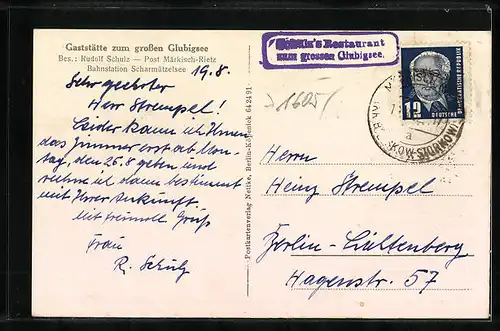 Gaststätte zum großen Glubigsee
Bes.: Rudolf Schulz — Post Märkisch-Rietz
Bahnstation Scharmützelsee
19.8.
Sehr geehrter
Herr Strempel!
Leider kann ich Ihnen
das Zimmer erst ab Mon-
tag, den 26.8 geben und
rechne ich dann bestimmt
mit Ihrer Ankunft.
Mit freundl. Gruß
Frau
R. Schulz
Postkartenverlag Netike, Berlin-Köpenick 642491
Schulz's Restaurant
zum grossen Glubigsee.
1605
12
DEUTSCHE
DEMOKRATISCHE REPUBLIK
a
STORKOW
Herrn
Heinz Strempel
Berlin-Lichtenberg
Hagenstr. 57